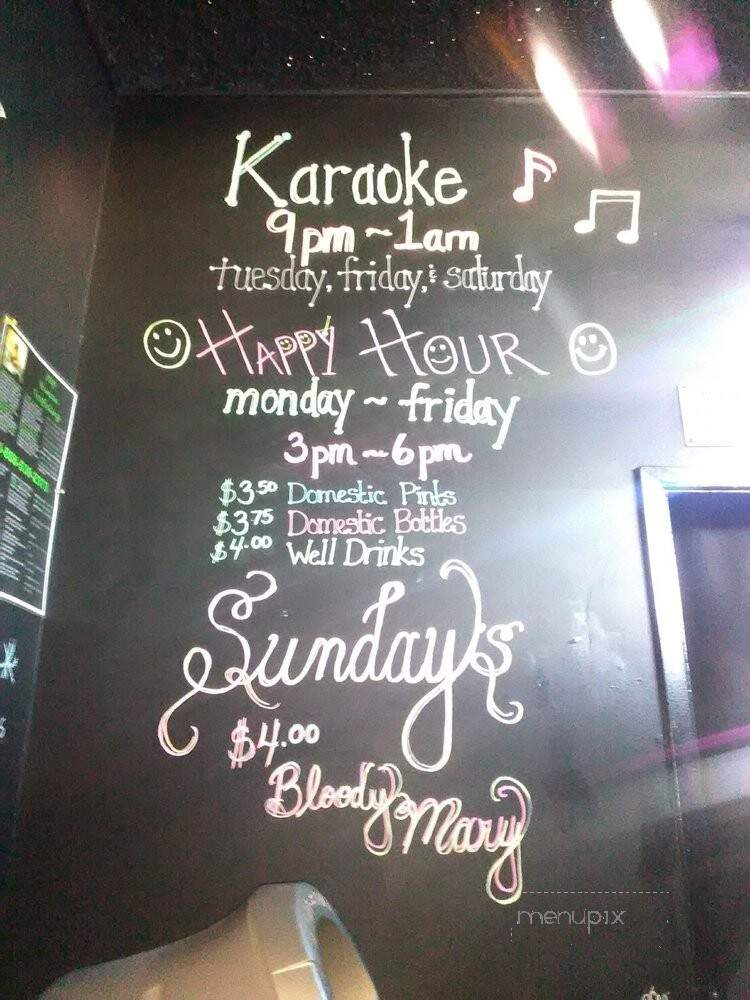 Karaoke
9pm ~ 1am
tuesday, friday, & saturday
HAPPY HOUR
monday ~ friday
3pm ~ 6pm
$3.50 Domestic Pints
$3.75 Domestic Bottles
$4.00 Well Drinks
Sunday's
$4.00
Bloody Mary
menupix